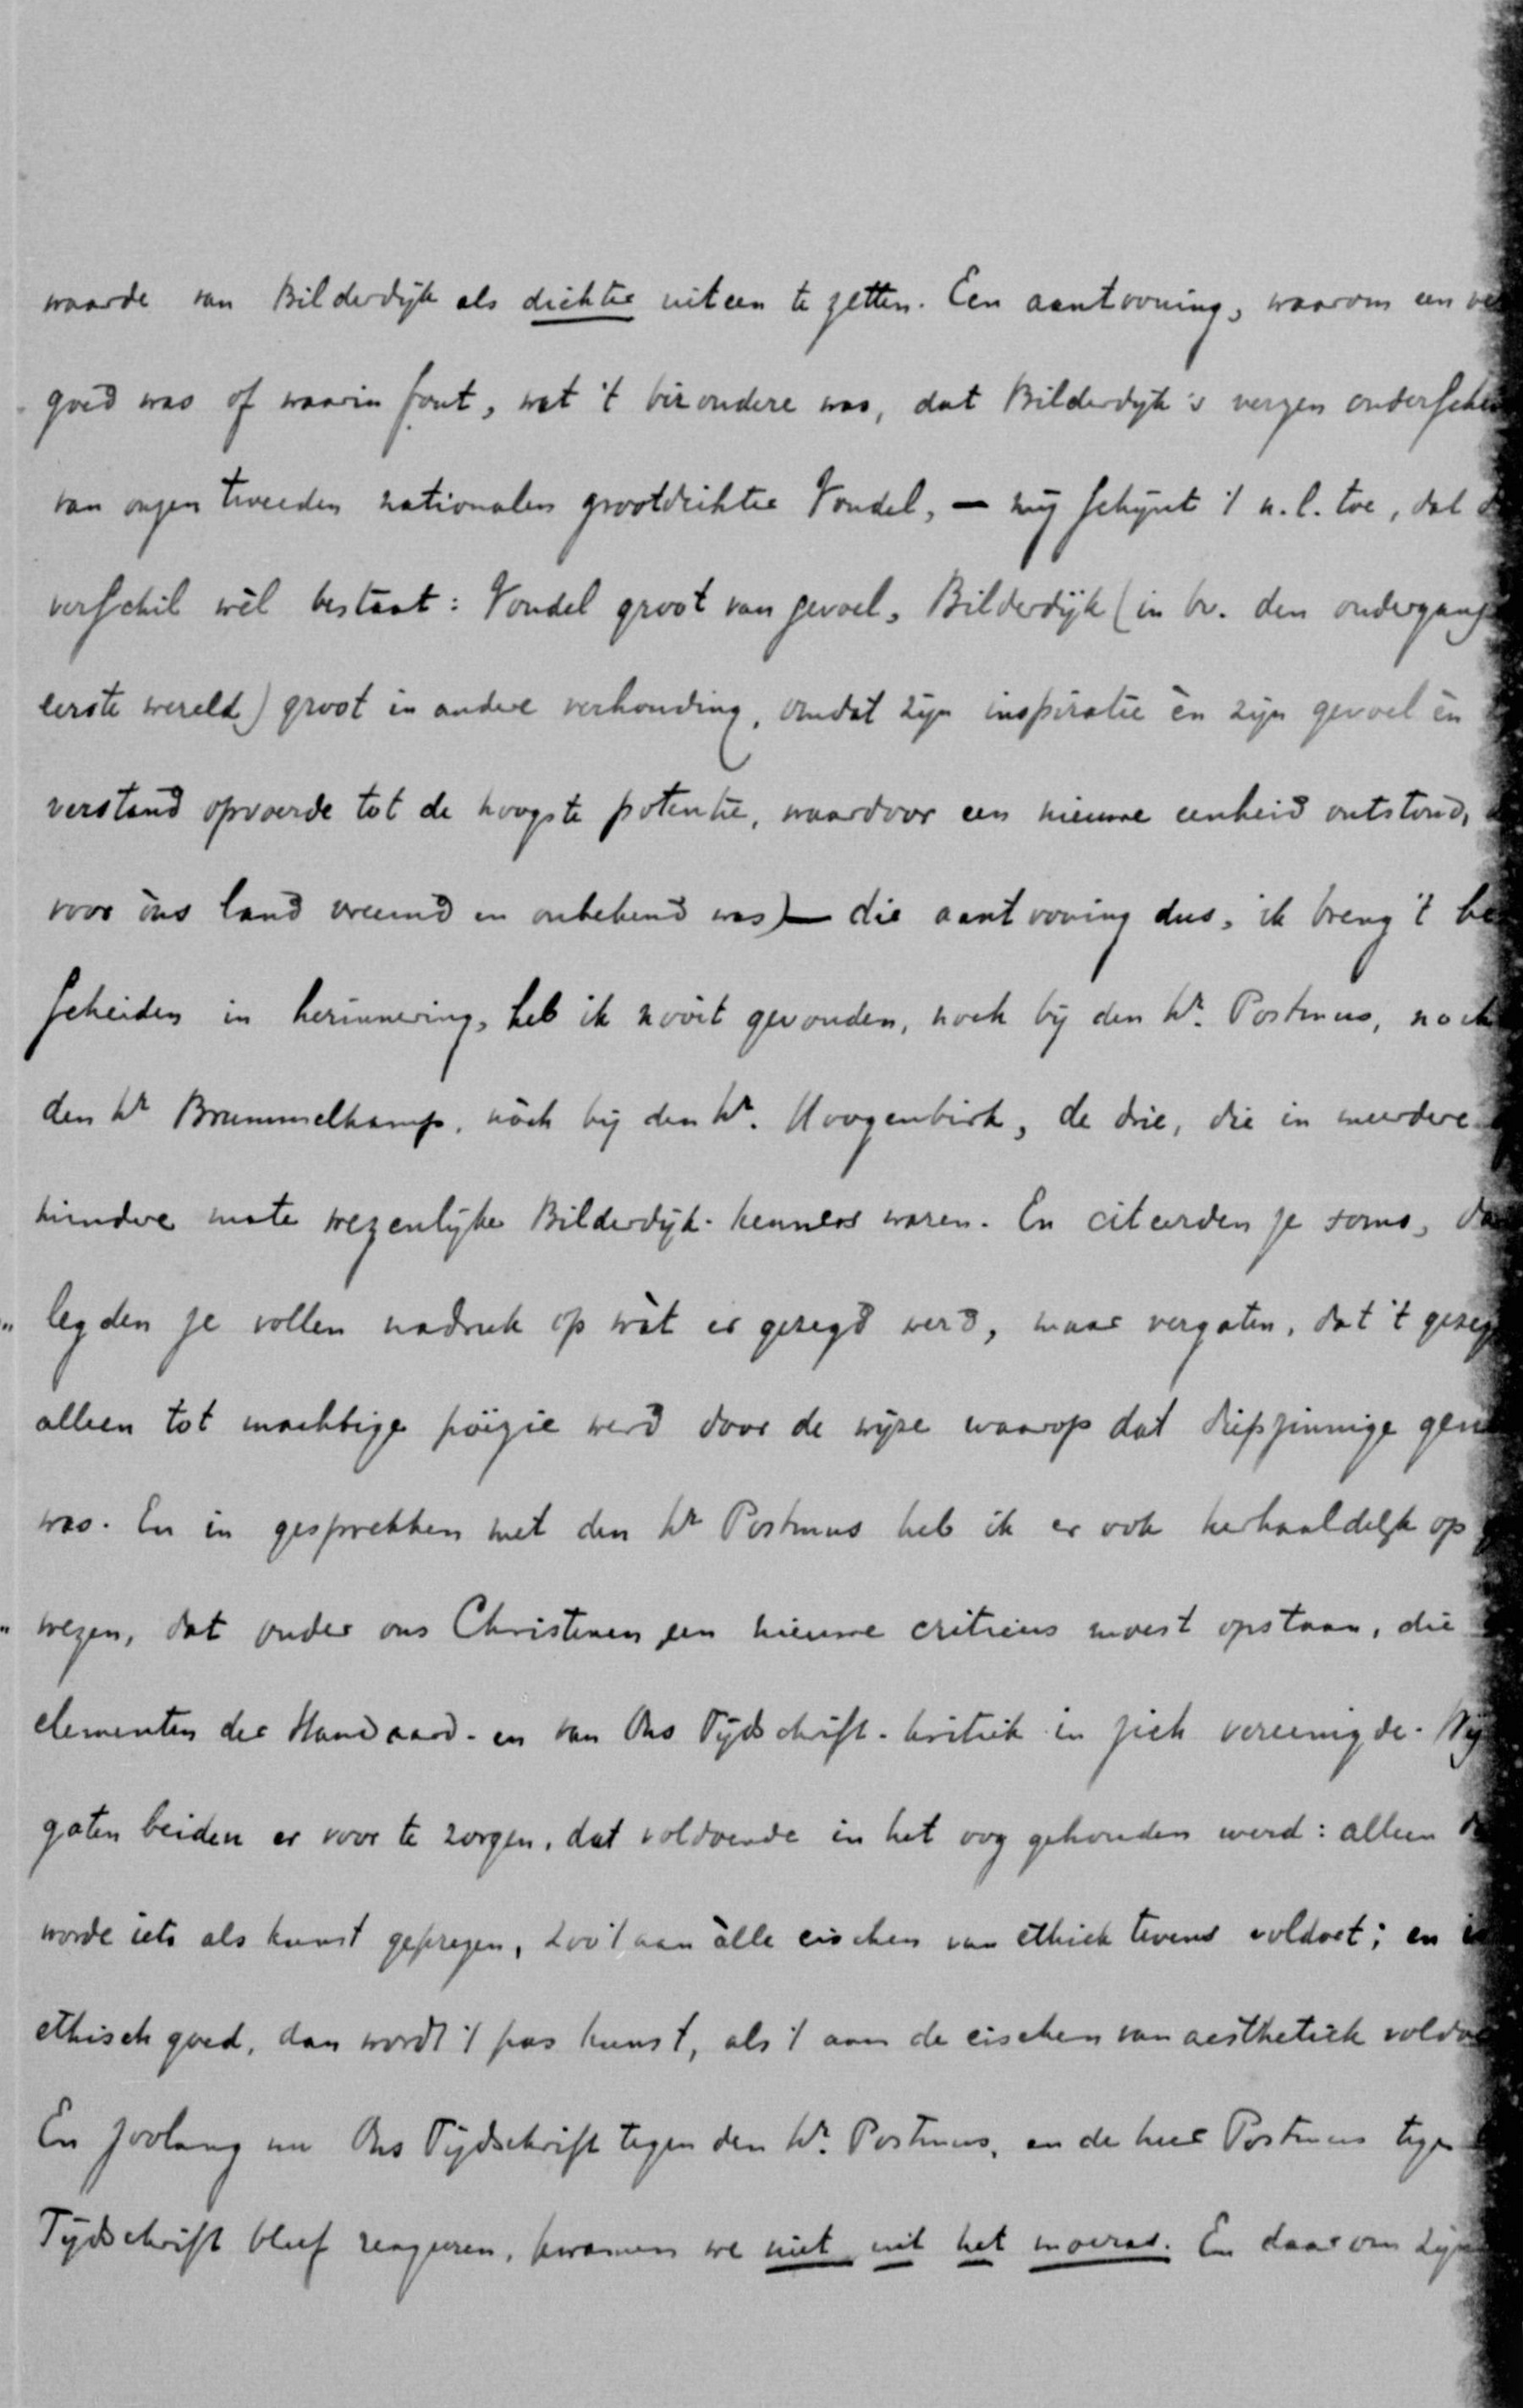 waarde van Bilderdijk als dichter uiteen te zetten. Een aantooning, waarom een
goed was of waarin fout, wat 't bizondere was, dat Bilderdijk's verzen onderschei
van onzen tweeden nationalen grootdichter Vondel, — mij schijnt 't n.l. toe, dat
verschil wèl bestaat: Vondel groot van gevoel, Bilderdijk (in bv. den ondergang
eerste wereld) groot in andere verhouding, omdat zijn inspiratie èn zijn gevoel èn
verstand opvoerde tot de hoogste potentie, waardoor een nieuwe eenheid ontstond,
voor òns land vreemd en onbekend was) — die aantooning dus, ik breng 't be
scheiden in herinnering, heb ik nooit gevonden, noch bij den Hr. Postmus, noch
den Hr Brummelkamp, nòch bij den Hr. Hoogenbirk, de drie, die in meerdere
mindere mate wezenlijke Bilderdijk-kenners waren. En citeerden ze soms, dan
" legden ze vollen nadruk op wàt er gezegd werd, maar vergaten, dat 't gezeg
alleen tot machtige poëzie werd door de wijze waarop dat diepzinnige
was. En in gesprekken met den Hr Postmus heb ik er ook herhaaldelijk op
" wezen, dat onder ons Christenen een nieuwe criticus moest opstaan, die
elementen der Standaard- en van Ons Tijdschrift-kritiek in zich vereenigde.
gaten beiden er voor te zorgen, dat voldoende in het oog gehouden werd: alleen
worde iets als kunst geprezen, zoo 't aan àlle eischen van ethiek tevens voldoet; en
ethisch goed, dan wordt 't pas kunst, als 't aan de eischen van aesthetiek voldoe
En zoolang nu Ons Tijdschrift tegen den Hr. Postmus, en de heer Postmus tegen
Tijdschrift bleef reageeren, kwamen we niet uit het moeras. En daarom zijn